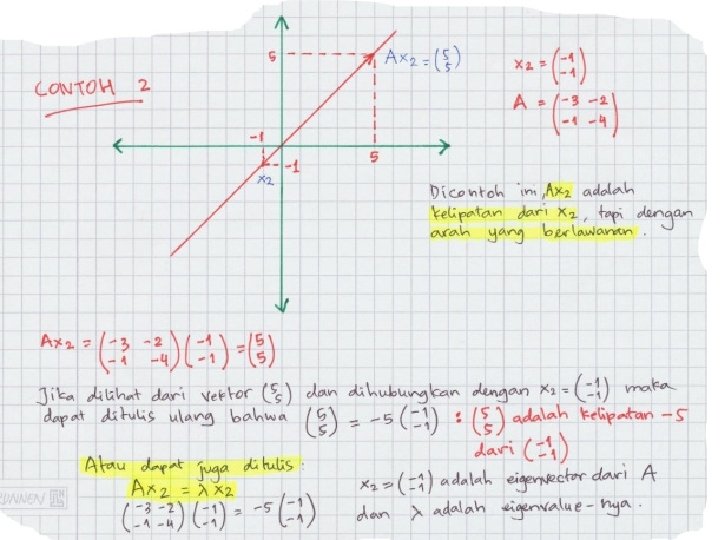 CONTOH 2
5
Ax2 = (5 5)
-1
-1
x2
5
x2 = (-1 -1)
A = (-3 -2 -1 -4)
Dicontoh ini, Ax2 adalah
kelipatan dari x2, tapi dengan
arah yang berlawanan.
Ax2 = (-3 -2 -1 -4)(-1 -1) = (5 5)
Jika dilihat dari vektor (5 5) dan dihubungkan dengan x2 = (-1 -1) maka
dapat ditulis ulang bahwa (5 5) = -5 (-1 -1) : (5 5) adalah kelipatan -5
dari (-1 -1)
Atau dapat juga ditulis :
Ax2 = λ x2
(-3 -2 -1 -4)(-1 -1) = -5 (-1 -1)
x2 => (-1 -1) adalah eigenvector dari A
dan λ adalah eigenvalue-nya.